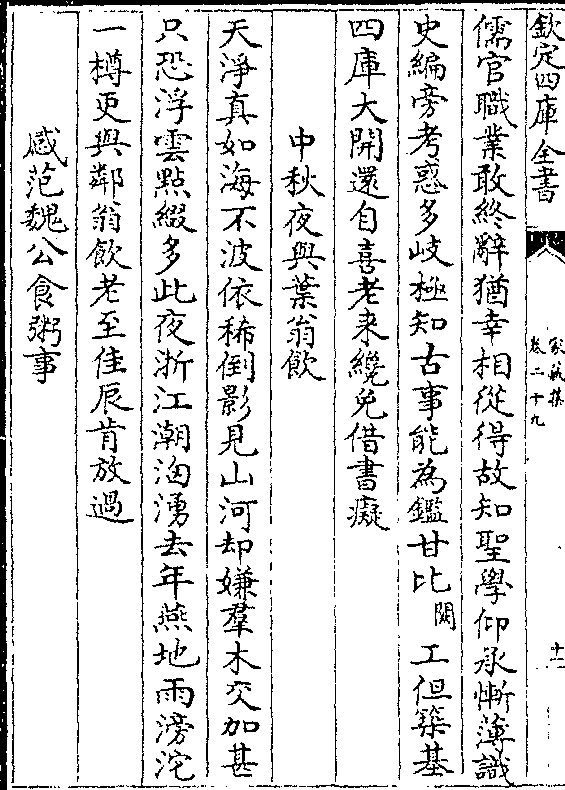 欽定四庫全書
家藏集
卷二十九
十一
儒官職業敢終辭猶幸相從得故知聖學仰承慚薄識
史編旁考惑多岐極知古事能為鑑甘比闕工但築基
四庫大開還自喜老来纔免借書癡
中秋夜與葉翁飲
天淨真如海不波依稀倒影見山河却嫌羣木交加甚
只恐浮雲點綴多此夜浙江潮洶湧去年燕地雨滂沱
一樽更與鄰翁飲老至佳辰肯放過
感范魏公食粥事